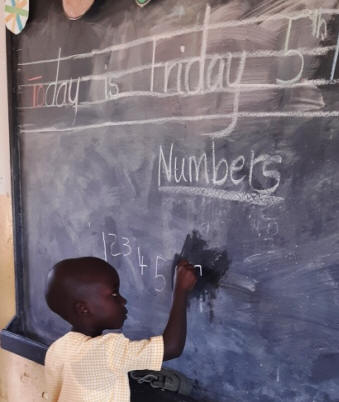 Today is Friday 5th
Numbers
1 2 3 4 5